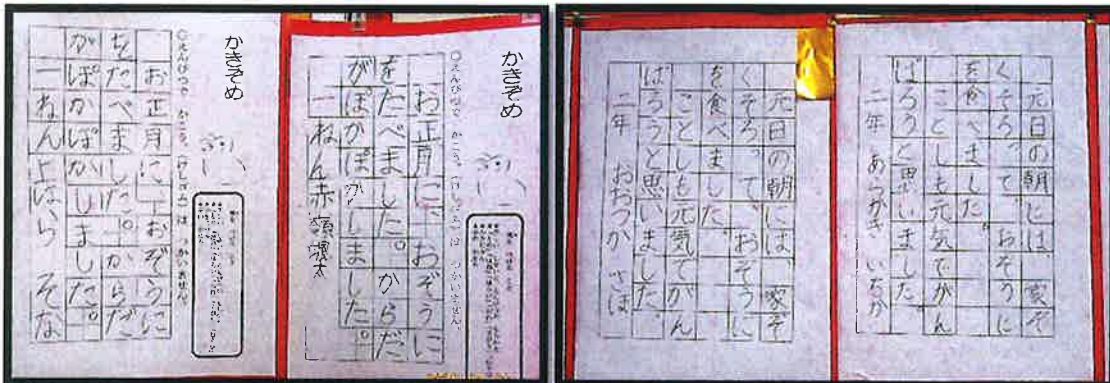 かきぞめ
○えんぴつで かこう。(けしゴムは つかいません。)
お正月に、おぞうに
をたべました。からだ
がぽかぽかしました。
一ねん赤 太
かきぞめ
○えんぴつで かこう。(けしゴムは つかいません。)
お正月に、おぞうに
をたべました。からだ
がぽかぽかしました。
一ねん上はら そな
元日の朝には、家ぞ
くそろって、おぞうに
を食べました。
ことしも元気でがん
ばろうと思いました。
二年 あらがき いちか
元日の朝には、家ぞ
くそろって、おぞうに
を食べました。
ことしも元気でがん
ばろうと思いました。
二年 おおつか さほ